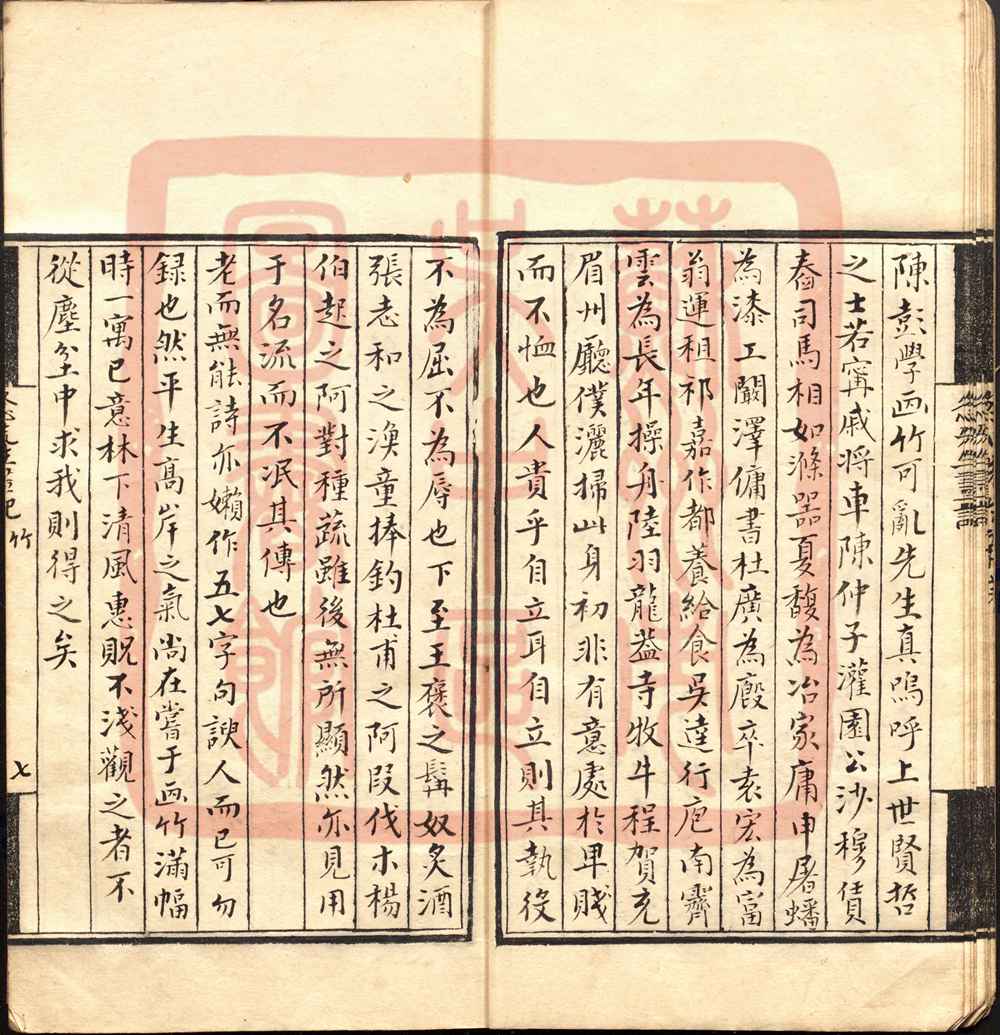 陳彭學画竹可亂先生真嗚呼上世賢哲
之士若甯戚將車陳仲子灌園公沙穆賃
舂司馬相如滌器夏馥為冶家庸申屠蟠
為漆工闞澤傭書杜廣為廄卒袁宏為富
翁運租祁嘉作都養給食吳逵行庖南齊
雲為長年操舟陸羽龍蓋寺牧牛程賀充
眉州廳僕灑掃此身初非有意處於卑賤
而不恤也人貴乎自立耳自立則其執役
不為屈不為辱也下至王褒之髯奴炙酒
張志和之漁童捧釣杜甫之阿段伐木楊
伯起之阿對種蔬雖後無所顯然亦見用
于名流而不泯其傳也
老而無能詩亦嬾作五七字句諛人而已可勿
録也然平生高岸之氣尚在嘗于画竹滿幅
時一寓己意林下清風惠貺不淺觀之者不
從塵坌中求我則得之矣
竹
七